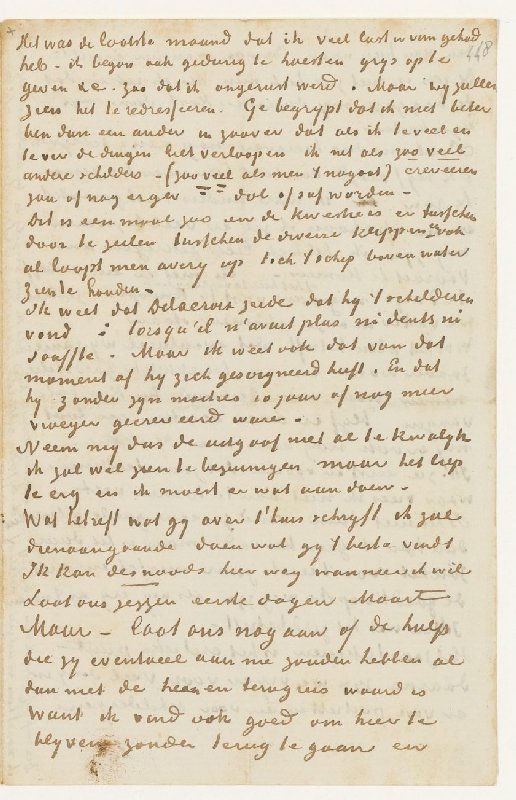 448
Het was de laatste maand dat ik veel last er van gehad
heb - ik begon ook gedurig te hoesten grys op te
geven &c. zoo dat ik ongerust werd. Maar wy zullen
zien het te redresseeren. Ge begrypt dat ik niet beter
ben dan een ander in zoover dat als ik te veel en
te ver de dingen liet verloopen ik net als zoo veel
andere schilders - (zoo veel als men 't nagaat) creveeren
zou of nog erger dol of suf worden -
Dit is eenmaal zoo en de kwestie is er tusschen
door te zeilen tusschen de diverse klippen en ook
al loopt men avery op toch 't schip boven water
zien te houden -
Ik weet dat Delacroix zeide dat hy 't schilderen
vond : lorsqu'il n'avait plus ni dents ni
souffle. Maar ik weet ook dat van dat
moment af hy zich gesoigneerd heeft. En dat
hy zonder zyn maitres 10 jaar of nog meer
vroeger gecreveerd ware.
Neem my dus de uitgaaf niet al te kwalyk
ik zal wel zien te bezuinigen maar het liep
te erg en ik moest er wat aan doen -
Wat betreft wat gy over 't huis schryft ik zal
dienaangaande doen wat gy 't beste vindt
Ik kan desnoods hier weg wanneer ik wil
Laat ons zeggen eerste dagen Maart
Maar - laat ons nog aan of de hulp
die zy eventueel aan me zouden hebben al
dan niet de heen en terugreis waard is
Want ik vind ook goed om hier te
blyven zonder terug te gaan en